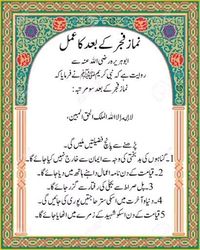 نماز فجر کے بعد کا عمل
ابوہریرہ رضی اللہ عنہ سے
روایت ہے کہ نبی کریم ﷺ نے فرمایا کہ
نماز فجر کے بعد سو مرتبہ:
لاالہ الا اللہ الملک الحق المبین،
پڑھنے سے پانچ فضیلتیں ملیں گی۔
1۔ گناہوں کی بدبختی کی وجہ سے ایمان سے خارج نہیں کیا جائے گا۔
2۔ قیامت کے دن نامہ اعمال داہنے ہاتھ میں دیا جائے گا۔
3۔ پل صراط سے بجلی کی رفتار سے گزر جائے گا۔
4۔ دنیا و آخرت میں اسکی ستر حاجتیں پوری کی جائیں گی۔
5۔ قیامت کے دن اسکو شہید کے زمرے میں اٹھایا جائے گا۔